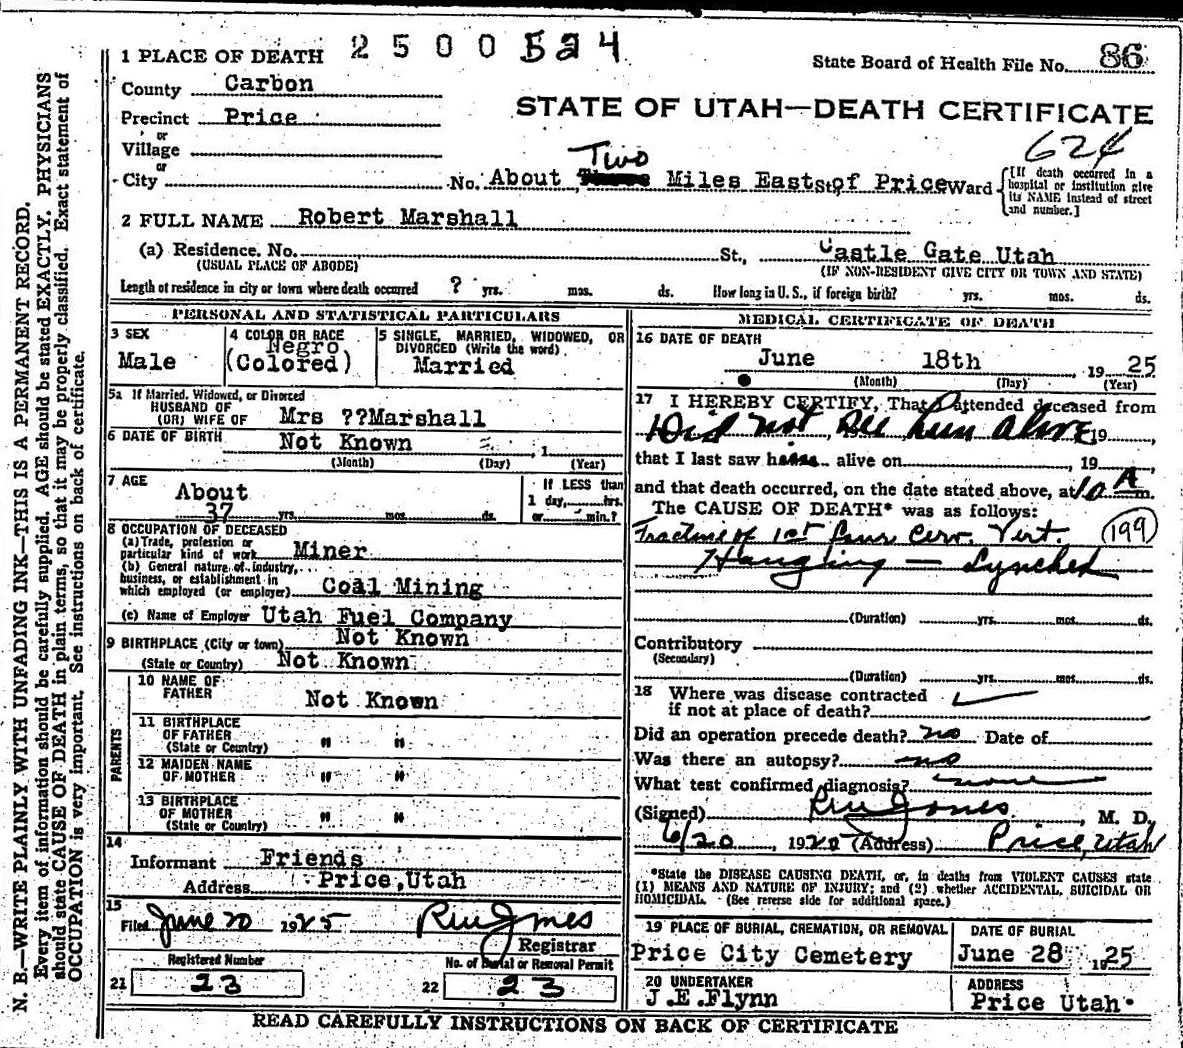 2500524
1 PLACE OF DEATH
State Board of Health File No. 86
County Carbon
STATE OF UTAH—DEATH CERTIFICATE
Precinct Price
624
or
Village
or
City
No. About Two Miles East St. of Price Ward
[If death occurred in a hospital or institution give its NAME instead of street and number.]
2 FULL NAME Robert Marshall
(a) Residence. No. St., Castle Gate Utah
(USUAL PLACE OF ABODE) (IF NON-RESIDENT GIVE CITY OR TOWN AND STATE)
Length of residence in city or town where death occurred ? yrs. mos. ds. How long in U. S., if foreign birth? yrs. mos. ds.
PERSONAL AND STATISTICAL PARTICULARS
3 SEX
Male
4 COLOR OR RACE
Negro
(Colored)
5 SINGLE, MARRIED, WIDOWED, OR
DIVORCED (Write the word)
Married
5a If Married, Widowed, or Divorced
HUSBAND OF
(OR) WIFE OF Mrs ??Marshall
6 DATE OF BIRTH Not Known , 1
(Month) (Day) (Year)
7 AGE
About
37 yrs. mos. ds.
If LESS than
1 day, hrs.
or min.?
8 OCCUPATION OF DECEASED
(a) Trade, profession or
particular kind of work Miner
(b) General nature of industry,
business, or establishment in
which employed (or employer) Coal Mining
(c) Name of Employer Utah Fuel Company
9 BIRTHPLACE (City or town) Not Known
(State or Country) Not Known
PARENTS
10 NAME OF
FATHER Not Known
11 BIRTHPLACE
OF FATHER
(State or Country) " "
12 MAIDEN NAME
OF MOTHER " "
13 BIRTHPLACE
OF MOTHER
(State or Country) " "
14
Informant Friends
Address Price,Utah
15
Filed June 20 1925
Registrar
Registered Number
21 23
No. of Burial or Removal Permit
22 23
MEDICAL CERTIFICATE OF DEATH
16 DATE OF DEATH
June 18th , 19 25
(Month) (Day) (Year)
17 I HEREBY CERTIFY, That I attended deceased from
Did not see him alive 19
that I last saw him alive on , 19 ,
and that death occurred, on the date stated above, at 10 A m.
The CAUSE OF DEATH* was as follows:
Fracture of 1st four Cerv. Vert. (199)
Hanging — Lynched
(Duration) yrs. mos. ds.
Contributory
(Secondary)
(Duration) yrs. mos. ds.
18 Where was disease contracted
if not at place of death?
Did an operation precede death? no Date of
Was there an autopsy? no
What test confirmed diagnosis? none
(Signed) Jones , M. D.
6/20 , 1925 (Address) Price, Utah
*State the DISEASE CAUSING DEATH, or, in deaths from VIOLENT CAUSES state
(1) MEANS AND NATURE OF INJURY; and (2) whether ACCIDENTAL, SUICIDAL OR
HOMICIDAL. (See reverse side for additional space.)
19 PLACE OF BURIAL, CREMATION, OR REMOVAL
Price City Cemetery
DATE OF BURIAL
June 28 1925
20 UNDERTAKER
J.E.Flynn
ADDRESS
Price Utah.
READ CAREFULLY INSTRUCTIONS ON BACK OF CERTIFICATE
N. B.—WRITE PLAINLY WITH UNFADING INK—THIS IS A PERMANENT RECORD.
Every item of information should be carefully supplied. AGE should be stated EXACTLY. PHYSICIANS
should state CAUSE OF DEATH in plain terms, so that it may be properly classified. Exact statement of
OCCUPATION is very important. See instructions on back of certificate.